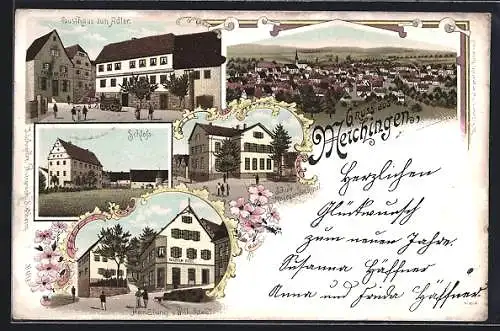 Gasthaus zum Adler.
Gruss aus
Meichingen.
Schloß.
Herzlichen
Glückwunsch
zum neuen Jahre.
Susanna Häffner
Anna und Frida Häffner.
Handlung v.